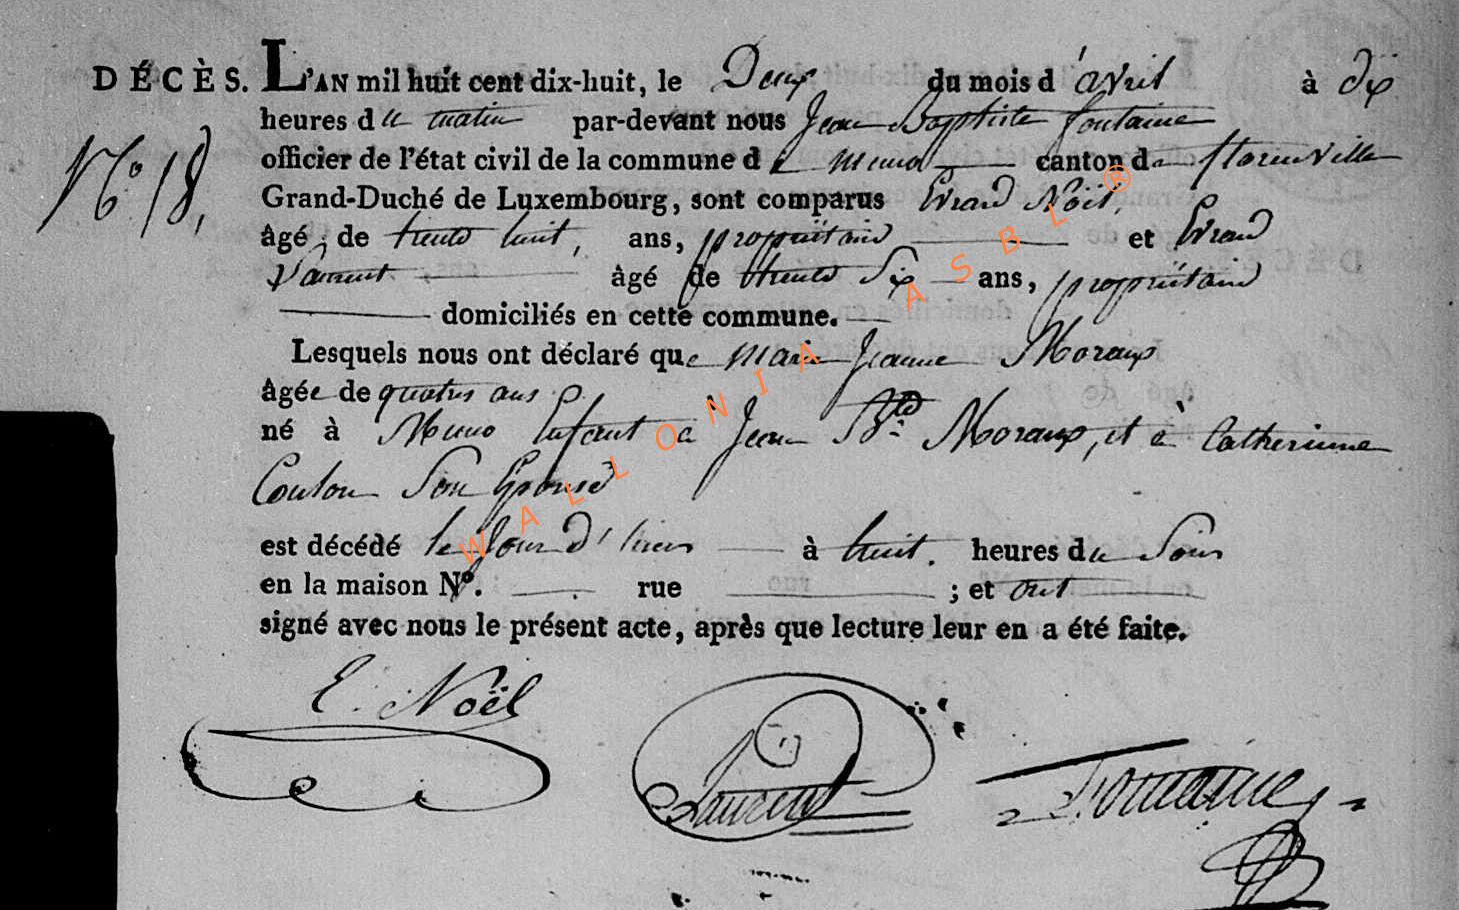 DÉCÈS. L'AN mil huit cent dix-huit, le Deux du mois d'avril à dix
heures du matin par-devant nous Jean Baptiste fontaine
officier de l'état civil de la commune de muno canton de florenville
N° 18,
Grand-Duché de Luxembourg, sont comparus Evrard Nöel,
âgé de trente huit, ans, propriétaire et Evrard
Laurent âgé de trente Six ans, propriétaire
domiciliés en cette commune.
Lesquels nous ont déclaré que marie Jeanne Moraux
âgée de quatre ans
né à Muno Enfant à Jean Bte Moraux, et à Catherinne
Coulon Son Epouse
est décédé le Jour d'hier à huit. heures du Soir
en la maison N°. rue ; et ont
signé avec nous le présent acte, après que lecture leur en a été faite.
E. Noël
Laurent
Fontaine
WALLONIA ASBL ®